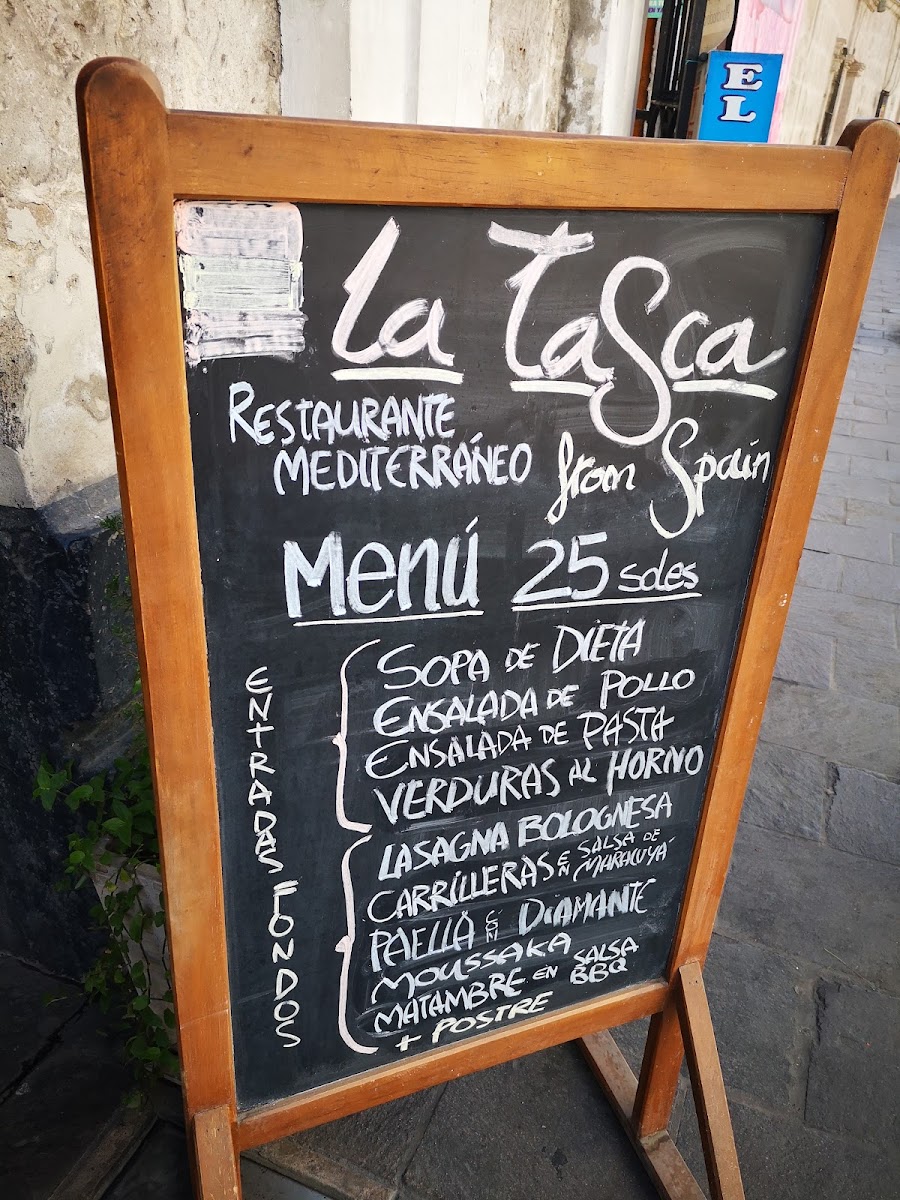 EL
La Tasca
RESTAURANTE
MEDITERRÁNEO
from Spain
Menú 25 soles
ENTRADAS
SOPA DE DIETA
ENSALADA DE POLLO
ENSALADA DE PASTA
VERDURAS AL HORNO
FONDOS
LASAGNA BOLOGNESA
CARRILLERAS EN SALSA DE MARACUYÁ
PAELLA CON DIAMANTE
MOUSSAKA
MATAMBRE EN SALSA BBQ
+ POSTRE